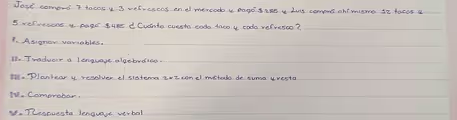 José compró 7 tacos y 3 refrescos en el mercado y pagó $285 y Luis compró ahí mismo 12 tacos y
5 refrescos y pagó $485 ¿Cuánto cuesta cada taco y cada refresco?
I.- Asignar variables.
II.- Traducir a lenguaje algebraico.
III.- Plantear y resolver el sistema 2x2 con el método de suma y resta
IV.- Comprobar.
V.- Respuesta lenguaje verbal